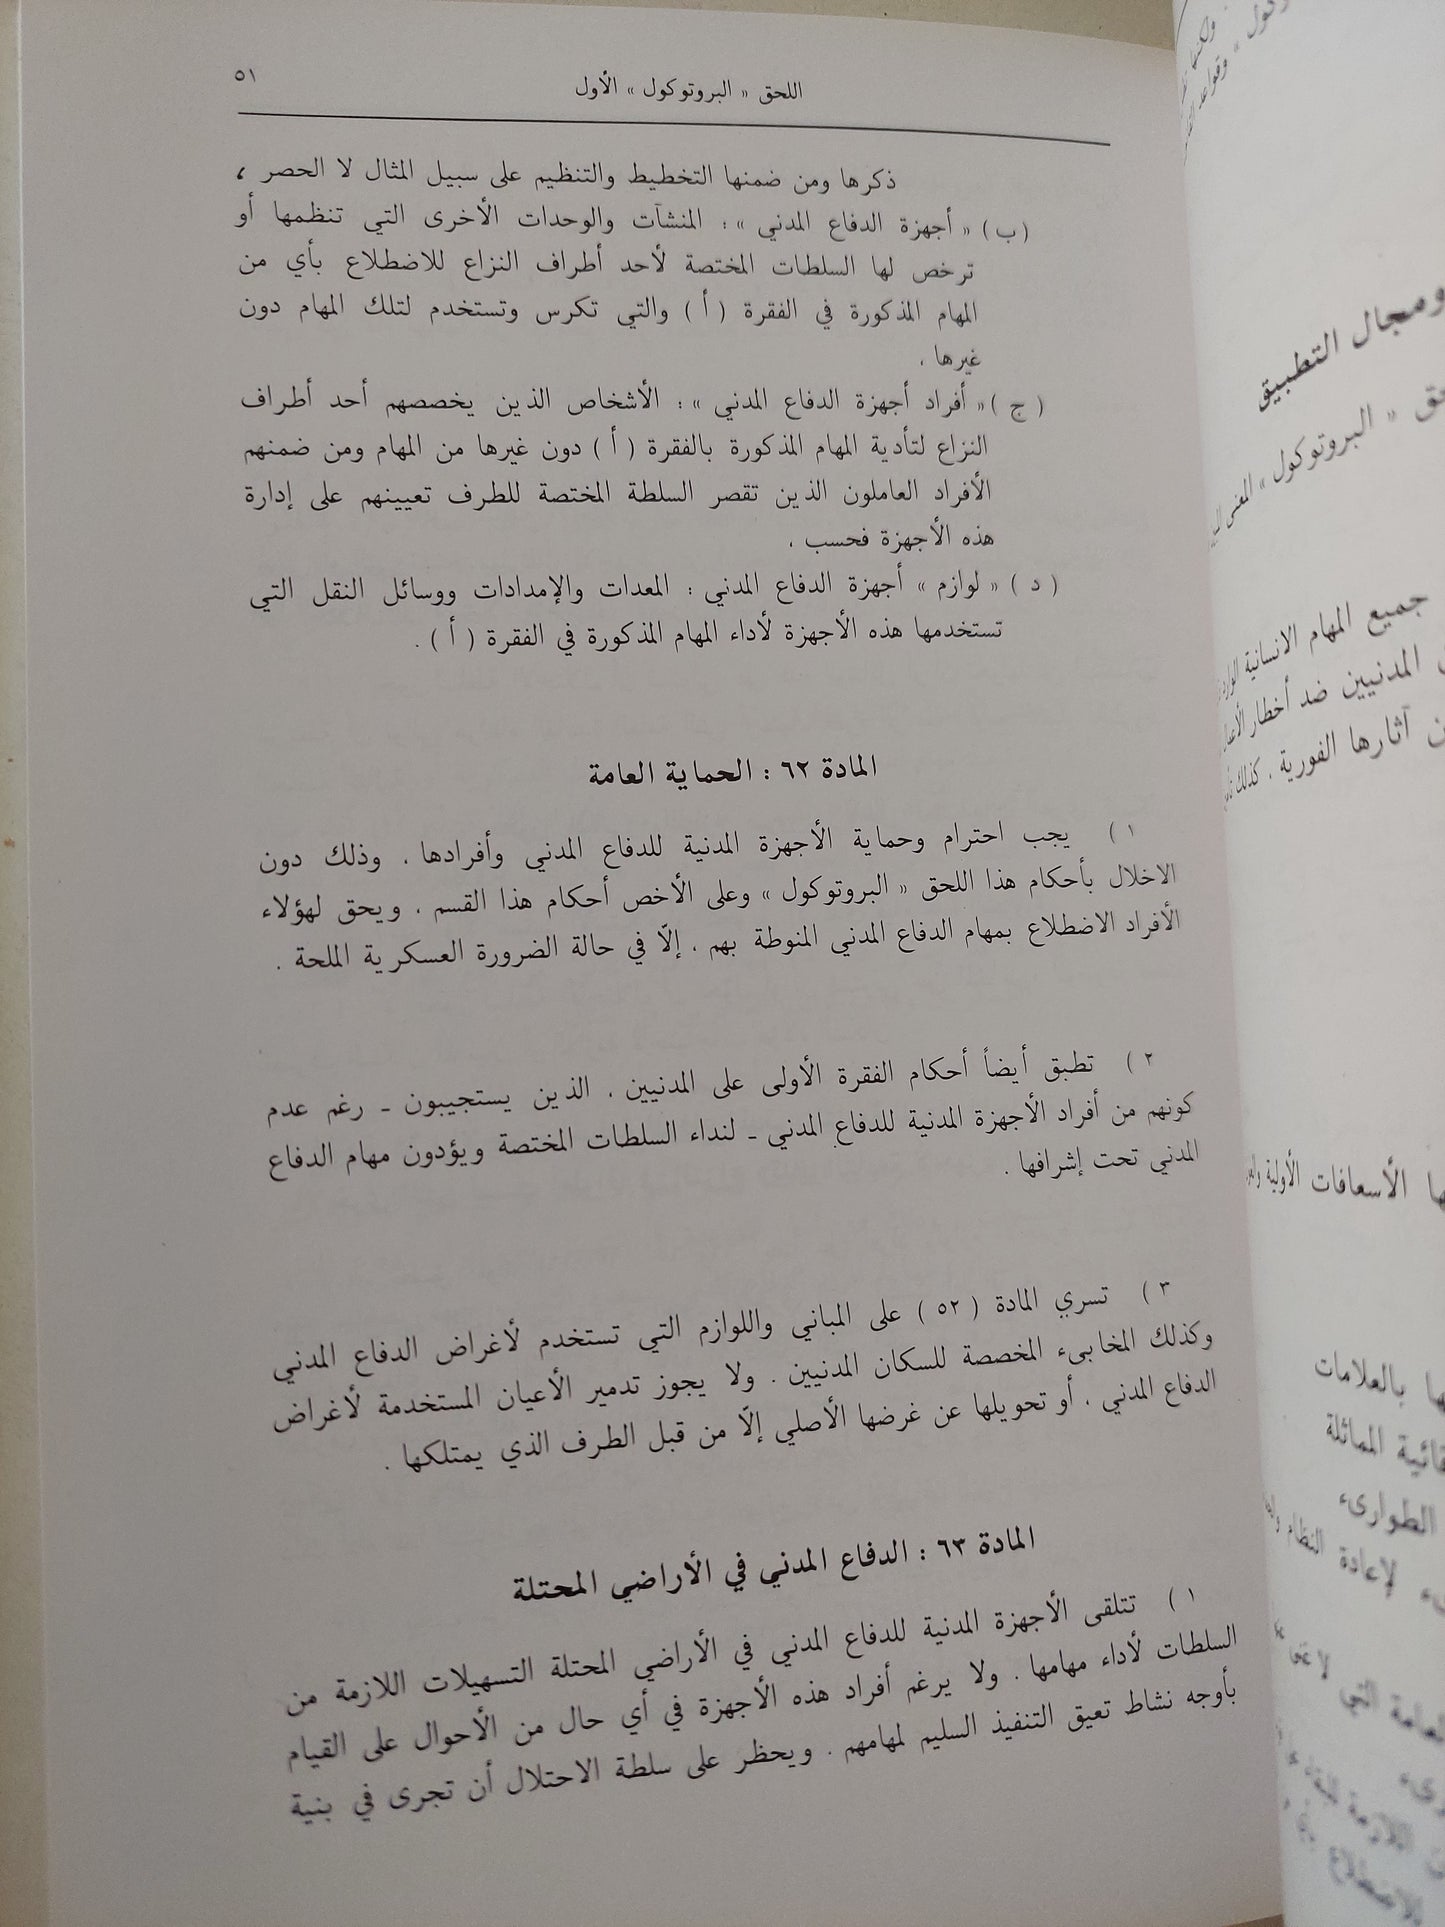 اللحق « البروتوكول » الأول
٥١
ذكرها ومن ضمنها التخطيط والتنظيم على سبيل المثال لا الحصر ،
( ب ) « أجهزة الدفاع المدني » : المنشآت والوحدات الأخرى التي تنظمها أو
ترخص لها السلطات المختصة لأحد أطراف النزاع للاضطلاع بأي من
المهام المذكورة في الفقرة ( أ ) والتي تكرس وتستخدم لتلك المهام دون
غيرها .
( ج ) « أفراد أجهزة الدفاع المدني » : الأشخاص الذين يخصصهم أحد أطراف
النزاع لتأدية المهام المذكورة بالفقرة ( أ ) دون غيرها من المهام ومن ضمنهم
الأفراد العاملون الذين تقصر السلطة المختصة للطرف تعيينهم على إدارة
هذه الأجهزة فحسب .
( د ) « لوازم » أجهزة الدفاع المدني : المعدات والإمدادات ووسائل النقل التي
تستخدمها هذه الأجهزة لأداء المهام المذكورة في الفقرة ( أ ) .
المادة ٦٢ : الحماية العامة
١ ) يجب احترام وحماية الأجهزة المدنية للدفاع المدني وأفرادها ، وذلك دون
الاخلال بأحكام هذا اللحق « البروتوكول » وعلى الأخص أحكام هذا القسم ، ويحق لهؤلاء
الأفراد الاضطلاع بمهام الدفاع المدني المنوطة بهم ، إلاّ في حالة الضرورة العسكرية الملحة .
٢ ) تطبق أيضاً أحكام الفقرة الأولى على المدنيين ، الذين يستجيبون ـ رغم عدم
كونهم من أفراد الأجهزة المدنية للدفاع المدني ـ لنداء السلطات المختصة ويؤدون مهام الدفاع
المدني تحت إشرافها .
٣ ) تسري المادة ( ٥٢ ) على المباني واللوازم التي تستخدم لأغراض الدفاع المدني
وكذلك المخابىء المخصصة للسكان المدنيين . ولا يجوز تدمير الأعيان المستخدمة لأغراض
الدفاع المدني ، أو تحويلها عن غرضها الأصلي إلاّ من قبل الطرف الذي يمتلكها .
المادة ٦٣ : الدفاع المدني في الأراضي المحتلة
١ ) تتلقى الأجهزة المدنية للدفاع المدني في الأراضي المحتلة التسهيلات اللازمة من
السلطات لأداء مهامها . ولا يرغم أفراد هذه الأجهزة في أي حال من الأحوال على القيام
بأوجه نشاط تعيق التنفيذ السليم لمهامهم . ويحظر على سلطة الاحتلال أن تجرى في بنية
ومجال التطبيق
« البروتوكول » المعنى
جميع المهام الانسانية
المدنيين ضد أخطار
آثارها الفورية ، كذلك
الأسعافات الأولية
بالعلامات
المماثلة
الطوارىء
لإعادة النظام